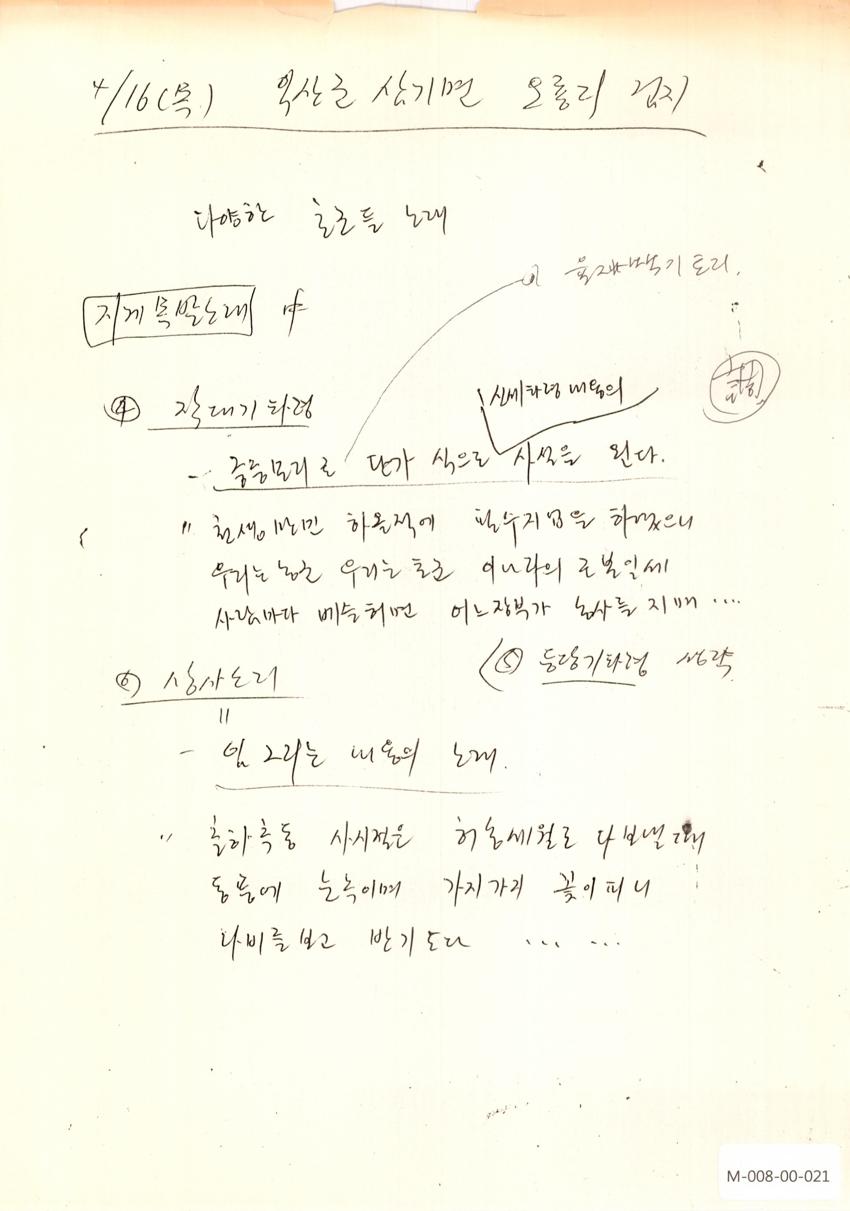 4/16(목) 익산군 삼기면 오룡리 검지
다양한 초군들 노래
육자백이토리.
지게목발노래 中
④ 작대기타령
신세타령 내용의
- 중중모리로 단가 식으로 사설을 왼다.
" 천생만민 하올적에 필수지업을 하였으니
우리는 농군 우리는 초군 이나라의 근본일세
사람마다 베슬허면 어느장부가 농사를 지며 ....
⑤ 둥당기타령 생략
⑥ 상사소리
- 임 그리는 내용의 노래.
" 춘하추동 사시절은 허송세월로 다보낼때
동풍에 눈녹이며 가지가지 꽃이피니
나비를보고 반기도다 ... ...
M-008-00-021